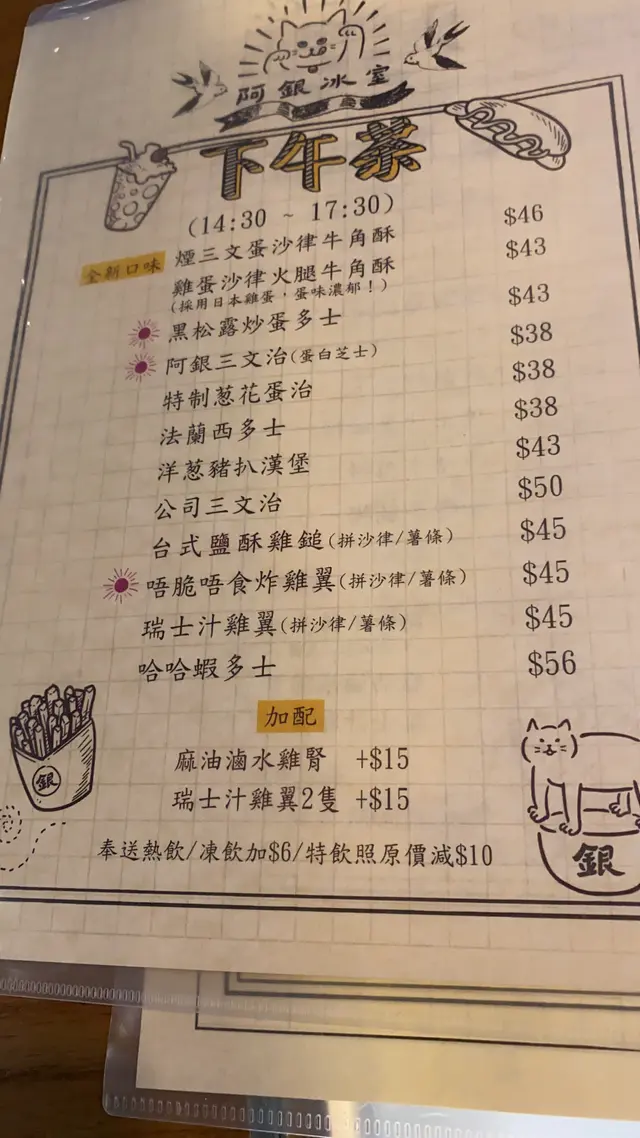 阿銀冰室
下午茶
(14:30 ~ 17:30)
全新口味 煙三文蛋沙律牛角酥 $46
雞蛋沙律火腿牛角酥 $43
(採用日本雞蛋，蛋味濃郁！)
黑松露炒蛋多士 $43
阿銀三文治(蛋白芝士) $38
特制葱花蛋治 $38
法蘭西多士 $38
洋葱豬扒漢堡 $43
公司三文治 $50
台式鹽酥雞鎚(拼沙律/薯條) $45
唔脆唔食炸雞翼(拼沙律/薯條) $45
瑞士汁雞翼(拼沙律/薯條) $45
哈哈蝦多士 $56
加配
麻油滷水雞腎 +$15
瑞士汁雞翼2隻 +$15
奉送熱飲/凍飲加$6/特飲照原價減$10
銀
銀